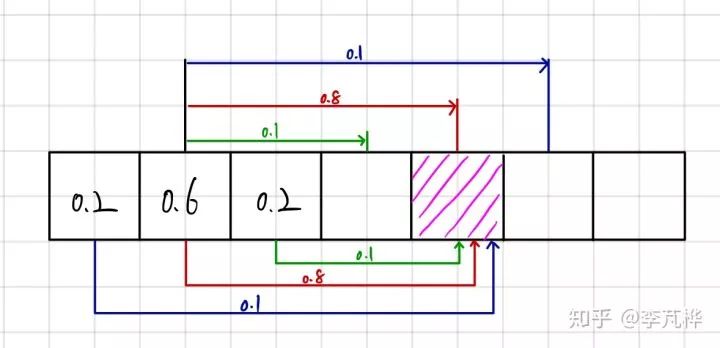 0.1
0.8
0.1
0.2 0.6 0.2
0.1
0.8
0.1
知乎 @李芃桦